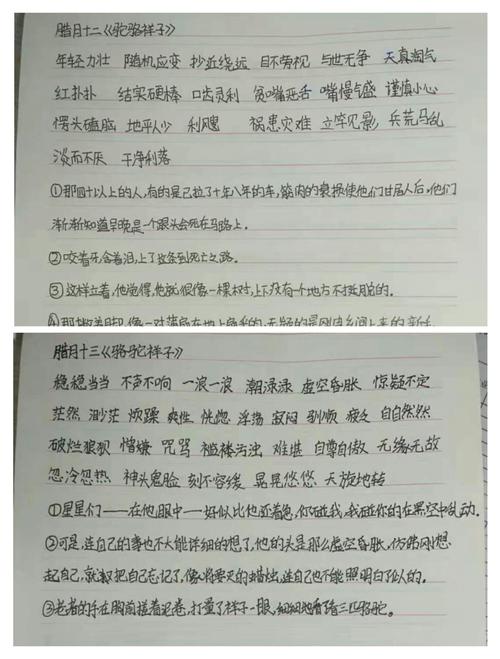 腊月十二《骆驼祥子》
年轻力壮 随机应变 抄近绕远 目不旁视 与世无争 天真淘气
红扑扑 结实硬棒 口齿灵利 贫嘴恶舌 嘴慢气盛 谨慎小心
愣头磕脑 地平人少 利飕 祸患灾难 立竿见影 兵荒马乱
淡而不厌 干净利落
①那四十以上的人,有的是已拉了十年八年的车,筋肉的衰损使他们甘居人后,他们
渐渐知道早晚是一个跟头会死在马路上。
②咬着牙,含着泪,上了这条到死亡之路。
③这样立着,他觉得,他就很像一棵树,上下没有一个地方不挺脱的。
腊月十三《骆驼祥子》
稳稳当当 不声不响 一浪一浪 潮渌渌 虚空昏胀 惊疑不定
茫然 渺茫 烦躁 爽性 恍惚 浮荡 寂闷 别顺 疲乏 自自然然
破烂狼狈 憎嫌 咒骂 难堪 自尊自傲 无缘无故
忽冷忽热 神头鬼脸 刻不容缓 晃晃悠悠 天旋地转
①星星们——在他眼中——好似比他还着急,你碰我,我碰你的在黑空中乱动。
②可是,连自己的事也不大能详细的想了,他的头是那么虚空昏胀,仿佛刚想
起自己,就又把自己忘记了,像将要灭的蜡烛,连自己也不能照明白了似的。
③老者的手在胸前搓着泥卷,打量了祥子一眼,细细地看看三匹骆驼。